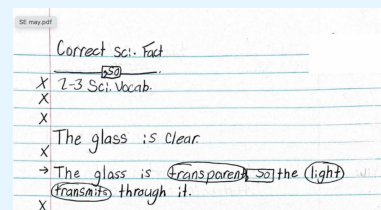 SE may.pdf
Correct sci. Fact
, so
X 2-3 Sci. Vocab.
X
X
The glass is clear.
X
→ The glass is transparent, so the light
transmits through it.
X